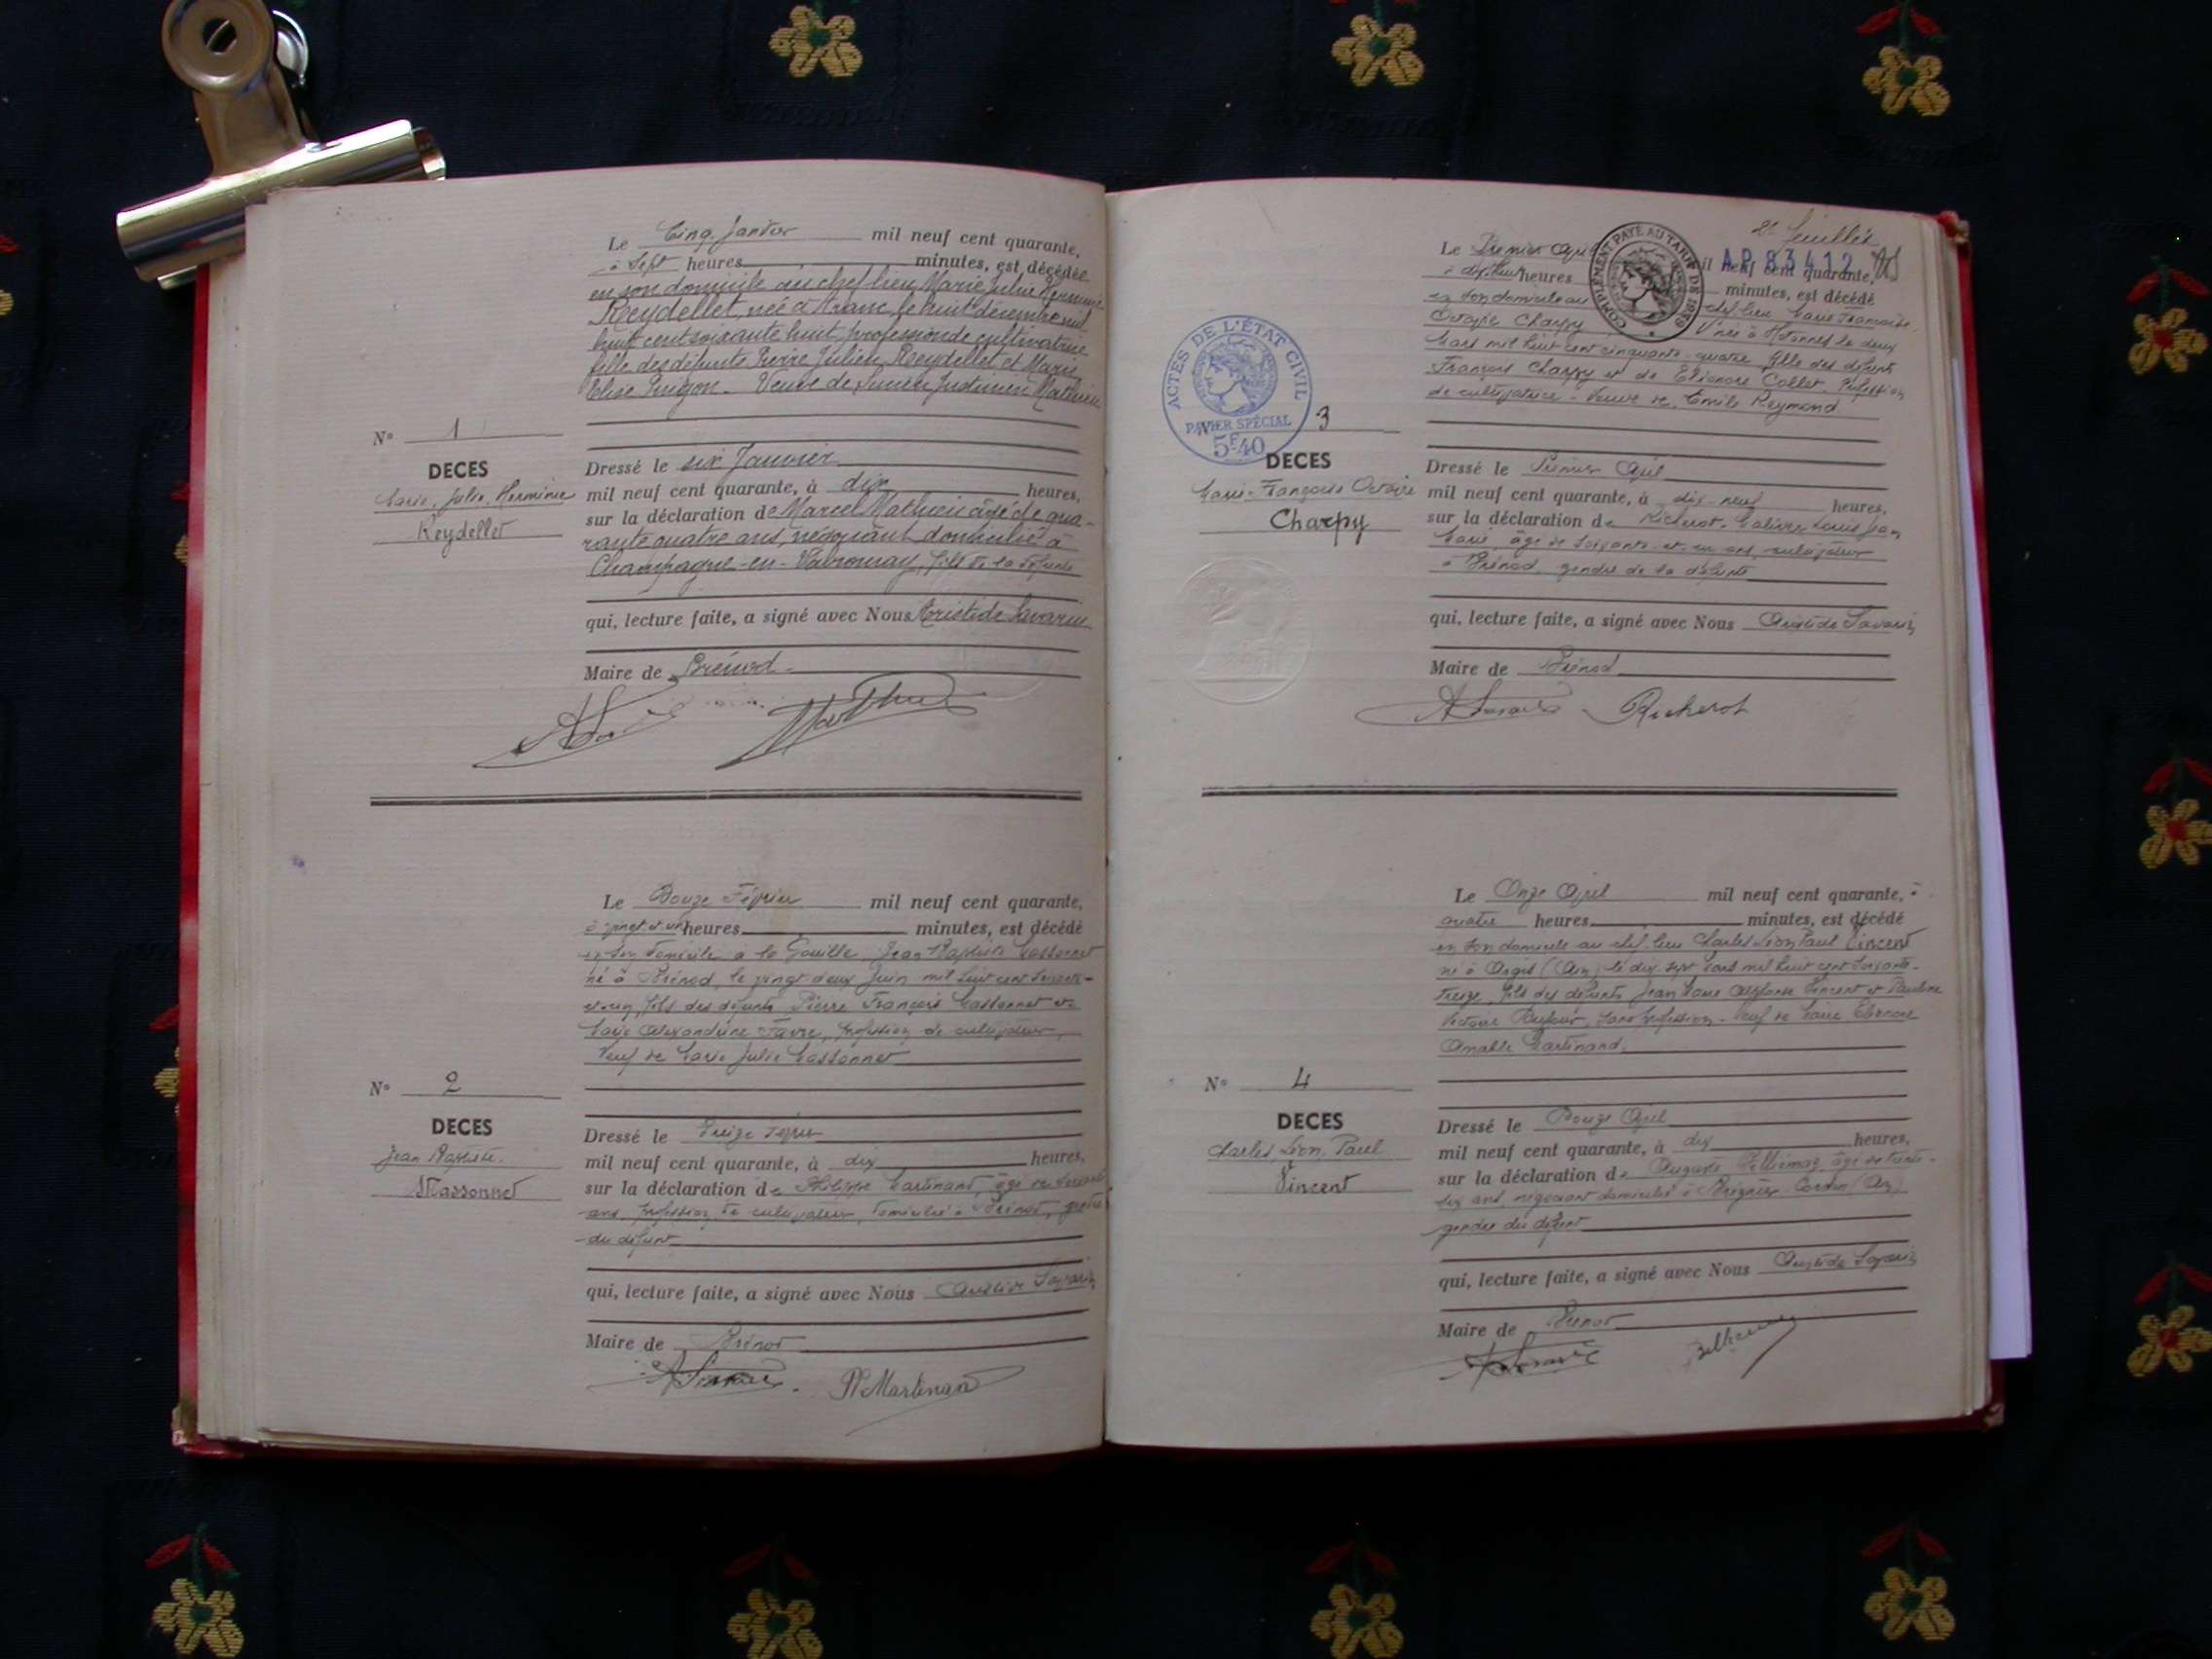 Le Cinq Janvier mil neuf cent quarante,
à Sept heures minutes, est décédée
en son domicile au chef lieu, Marie Julie Herminie
Reydellet, née à Aranc, le huit décembre mil
huit cent soixante huit, profession de cultivatrice
fille des défunts Pierre Julien Reydellet et Marie
Elise Guigon. Veuve de Lucien Justinien Mathieu
N° 1
DECES
Marie, Julie, Herminie
Reydellet
Dressé le six Janvier
mil neuf cent quarante, à dix heures,
sur la déclaration de Marcel Mathieu âgé de qua-
rante quatre ans, négociant domicilié à
Champagne-en-Valromay, fils de la défunte
qui, lecture faite, a signé avec Nous Aristide Savarin
Maire de Brénod
Le Douze Février mil neuf cent quarante,
à vingt et un heures minutes, est décédé
en son domicile à la Gouille Jean Baptiste Massonnet
né à Brénod, le vingt deux Juin mil huit cent soixante-
et-un, fils des défunts Pierre François Massonnet et de
Marie Alexandrine Favre, profession de cultivateur,
Veuf de Marie Julie Massonnet
N° 2
DECES
Jean Baptiste
Massonnet
Dressé le Treize Février
mil neuf cent quarante, à dix heures,
sur la déclaration de Philippe Martinand, âgé de
ans, profession de cultivateur, domicilié à Brénod, gendre
du défunt
qui, lecture faite, a signé avec Nous Aristide Savarin
Maire de Brénod
A Savarin Ph Martinand
21 feuillet
AP 83412
COMPLÉMENT PAYÉ AU TARIF DE 1939
Le Premier Avril mil neuf cent quarante,
à dix-huit heures minutes, est décédé
en son domicile au chef lieu Marie Françoise
Octavie Charpy née à Hotonnes le deux
Mars mil huit cent cinquante-quatre fille des défunts
François Charpy et de Eléonore Collet. Profession
de cultivatrice - Veuve de Emile Reymond
ACTES DE L'ÉTAT CIVIL
PAPIER SPÉCIAL
5F40
3
DECES
Marie-Françoise Octavie
Charpy
Dressé le Premier Avril
mil neuf cent quarante, à dix-neuf heures,
sur la déclaration de Richerot Louis Jean
Marie, âgé de soixante-et-un ans, cultivateur
à Brénod, gendre de la défunte
qui, lecture faite, a signé avec Nous Aristide Savarin
Maire de Brénod
A Savarin Richerot
Le Onze Avril mil neuf cent quarante, à
quatre heures minutes, est décédé
en son domicile au chef lieu Charles Léon Paul Vincent
né à Argis (Ain) le dix sept Mars mil huit cent soixante-
treize, fils des défunts Jean Marie Alphonse Vincent et Pauline
Victoire Dufour, sans profession - Veuf de Marie
Amable Martinand
N° 4
DECES
Charles, Léon, Paul
Vincent
Dressé le Douze Avril
mil neuf cent quarante, à dix heures,
sur la déclaration de Auguste Belliemaz, âgé de trente-
six ans, négociant domicilié à Brégnier-Cordon (Ain)
gendre du défunt
qui, lecture faite, a signé avec Nous Aristide Savarin
Maire de Brénod
A Savarin